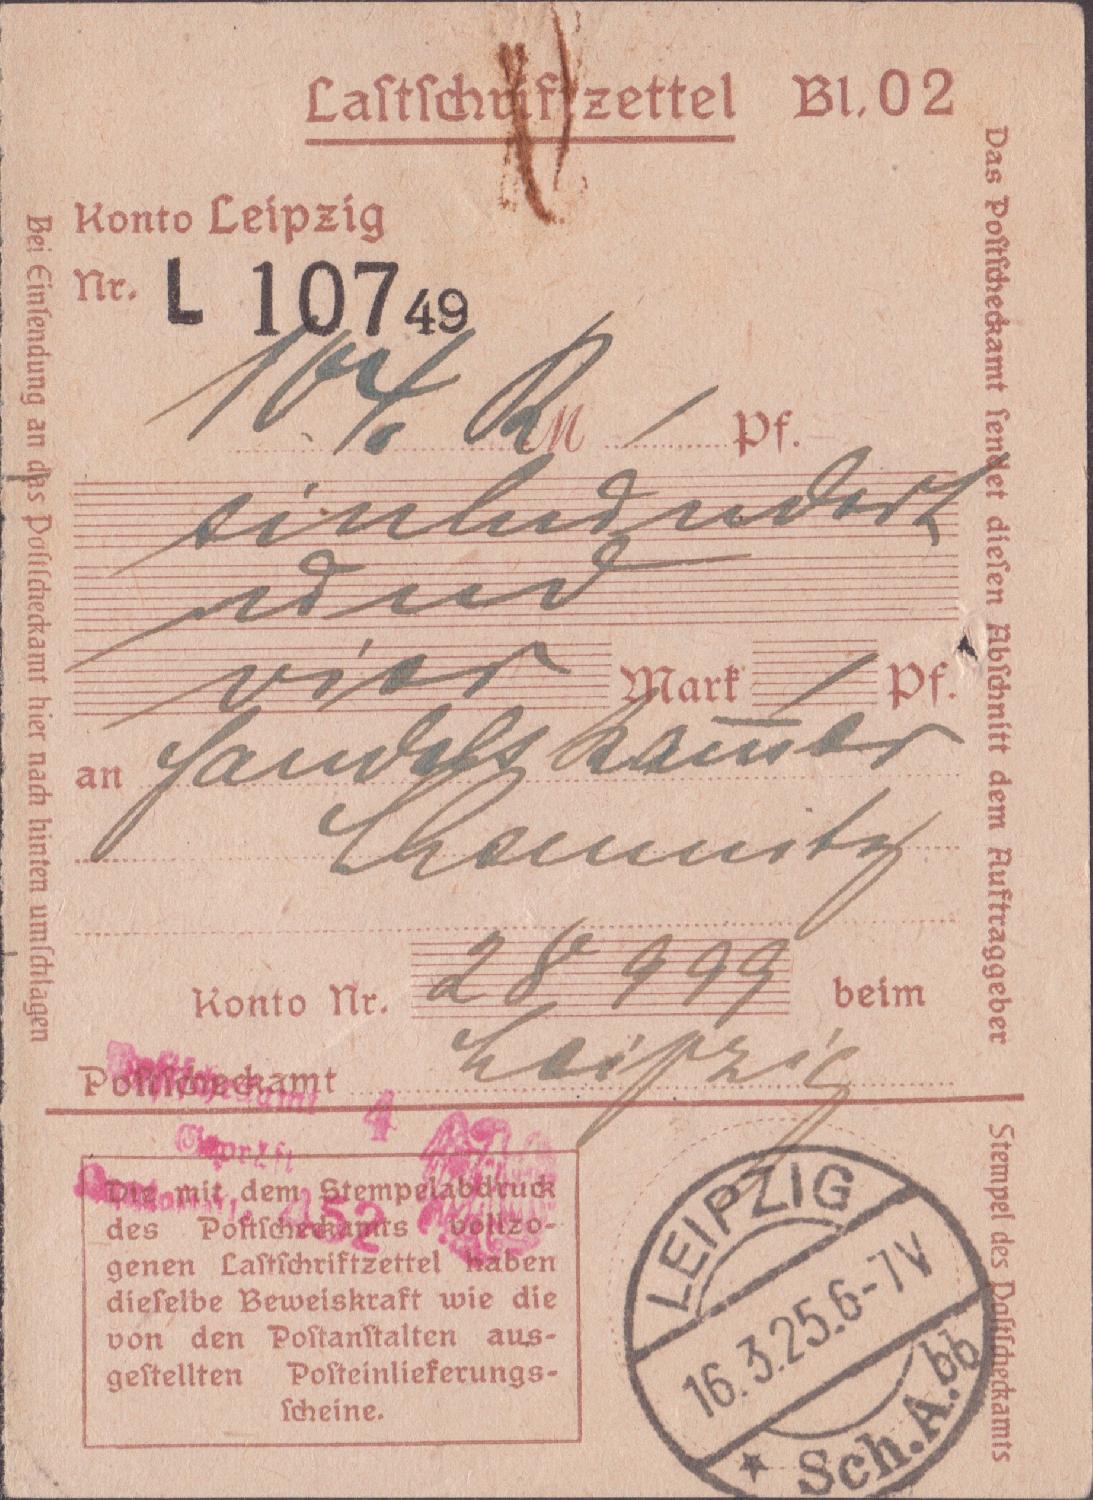 Laſtſchriftzettel Bl. 02
Konto Leipzig
Nr. L 107 49
104 R M / Pf.
einhundert
und
vier Mark / Pf.
an Handelskam̅er
Chemnitz
Konto Nr. 28 999 beim
Leipzig
Poſtſcheckamt
Bei Einſendung an das Poſtſcheckamt hier nach hinten umſchlagen
Das Poſtſcheckamt ſendet dieſen Abſchnitt dem Auftraggeber
Poſtſcheckamt 4
Geprüft
252
Die mit dem Stempelabdruck
des Poſtſcheckamts vollzo-
genen Laſtſchriftzettel haben
dieſelbe Beweiskraft wie die
von den Poſtanſtalten aus-
geſtellten Poſteinlieferungs-
ſcheine.
Stempel des Poſtſcheckamts
LEIPZIG
16.3.25.6-7V
* Sch.A.bb